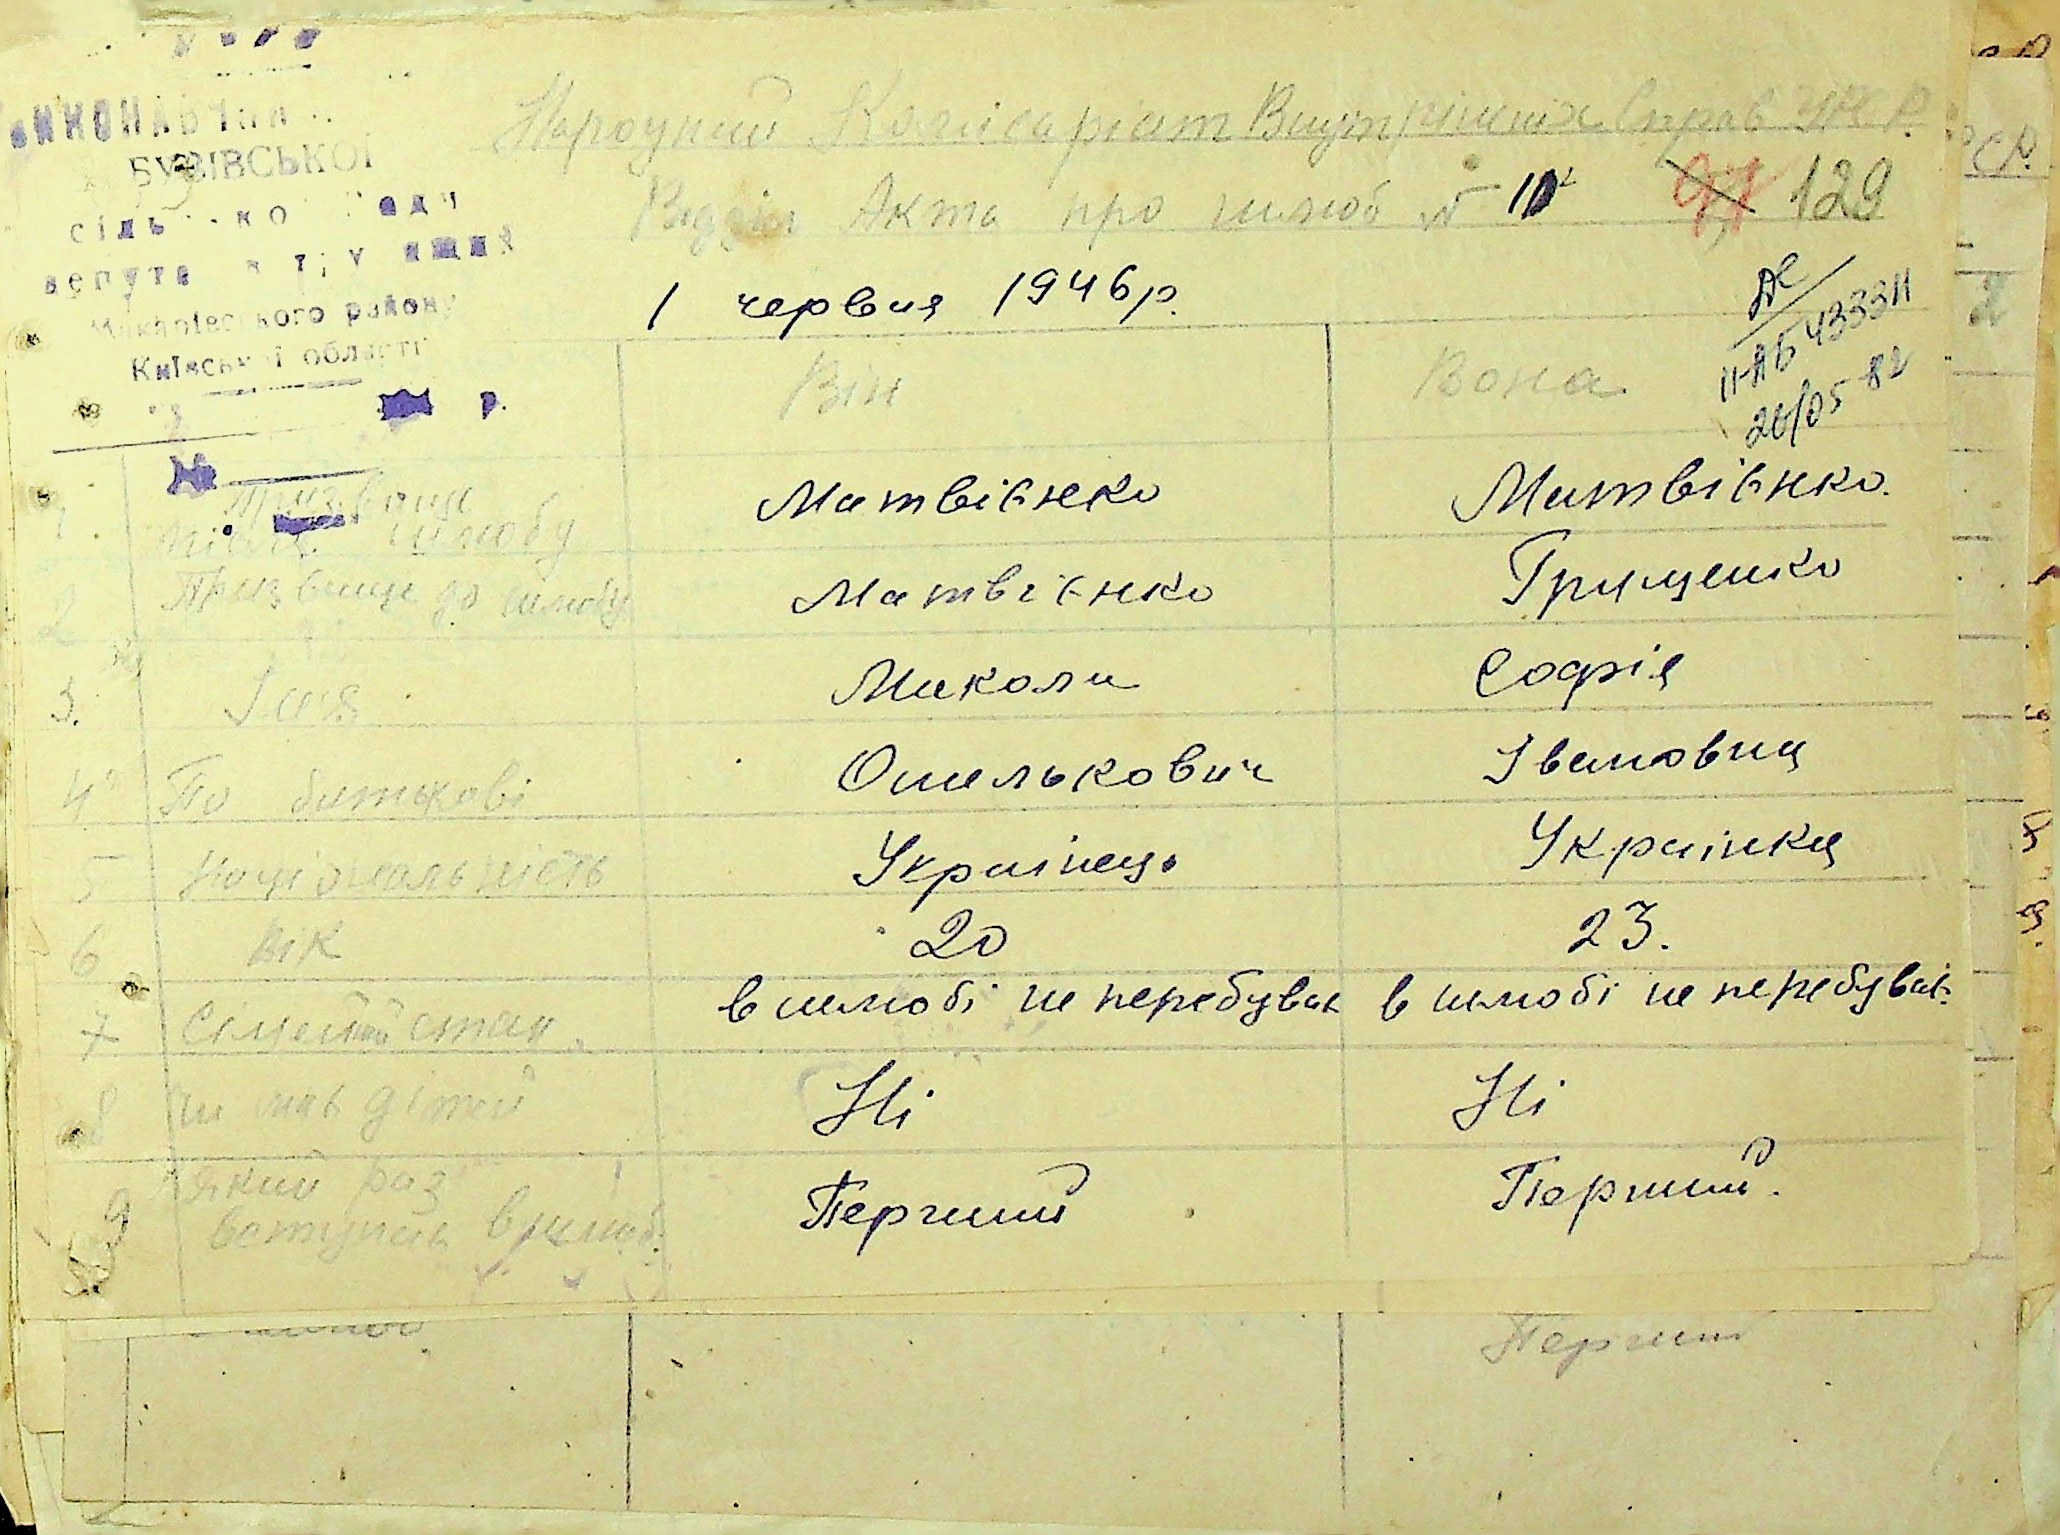 БУЗІВСЬКОЇ
району
Київської області
р.
Народний Комісаріат Внутрішніх Справ УРСР.
Відділ Акта про шлюб № 129
1 червня 1946 р.
ІІ-АБ 433311
26/05 82
Він Вона
1. Призвище після шлюбу Матвієнко Матвієнко.
2 Призвище до шлюбу Матвієнко Грищенко
3. Імя Микола Софія
4 По батькові Омелькович Івановна
5 Національність Українець Українка
6 Вік 20 23.
7 Сімейний стан в шлюбі не перебував в шлюбі не перебував.
8 Чи мав дітей Ні Ні
9 який раз
вступив в шлюб Перший Перший.
Перший